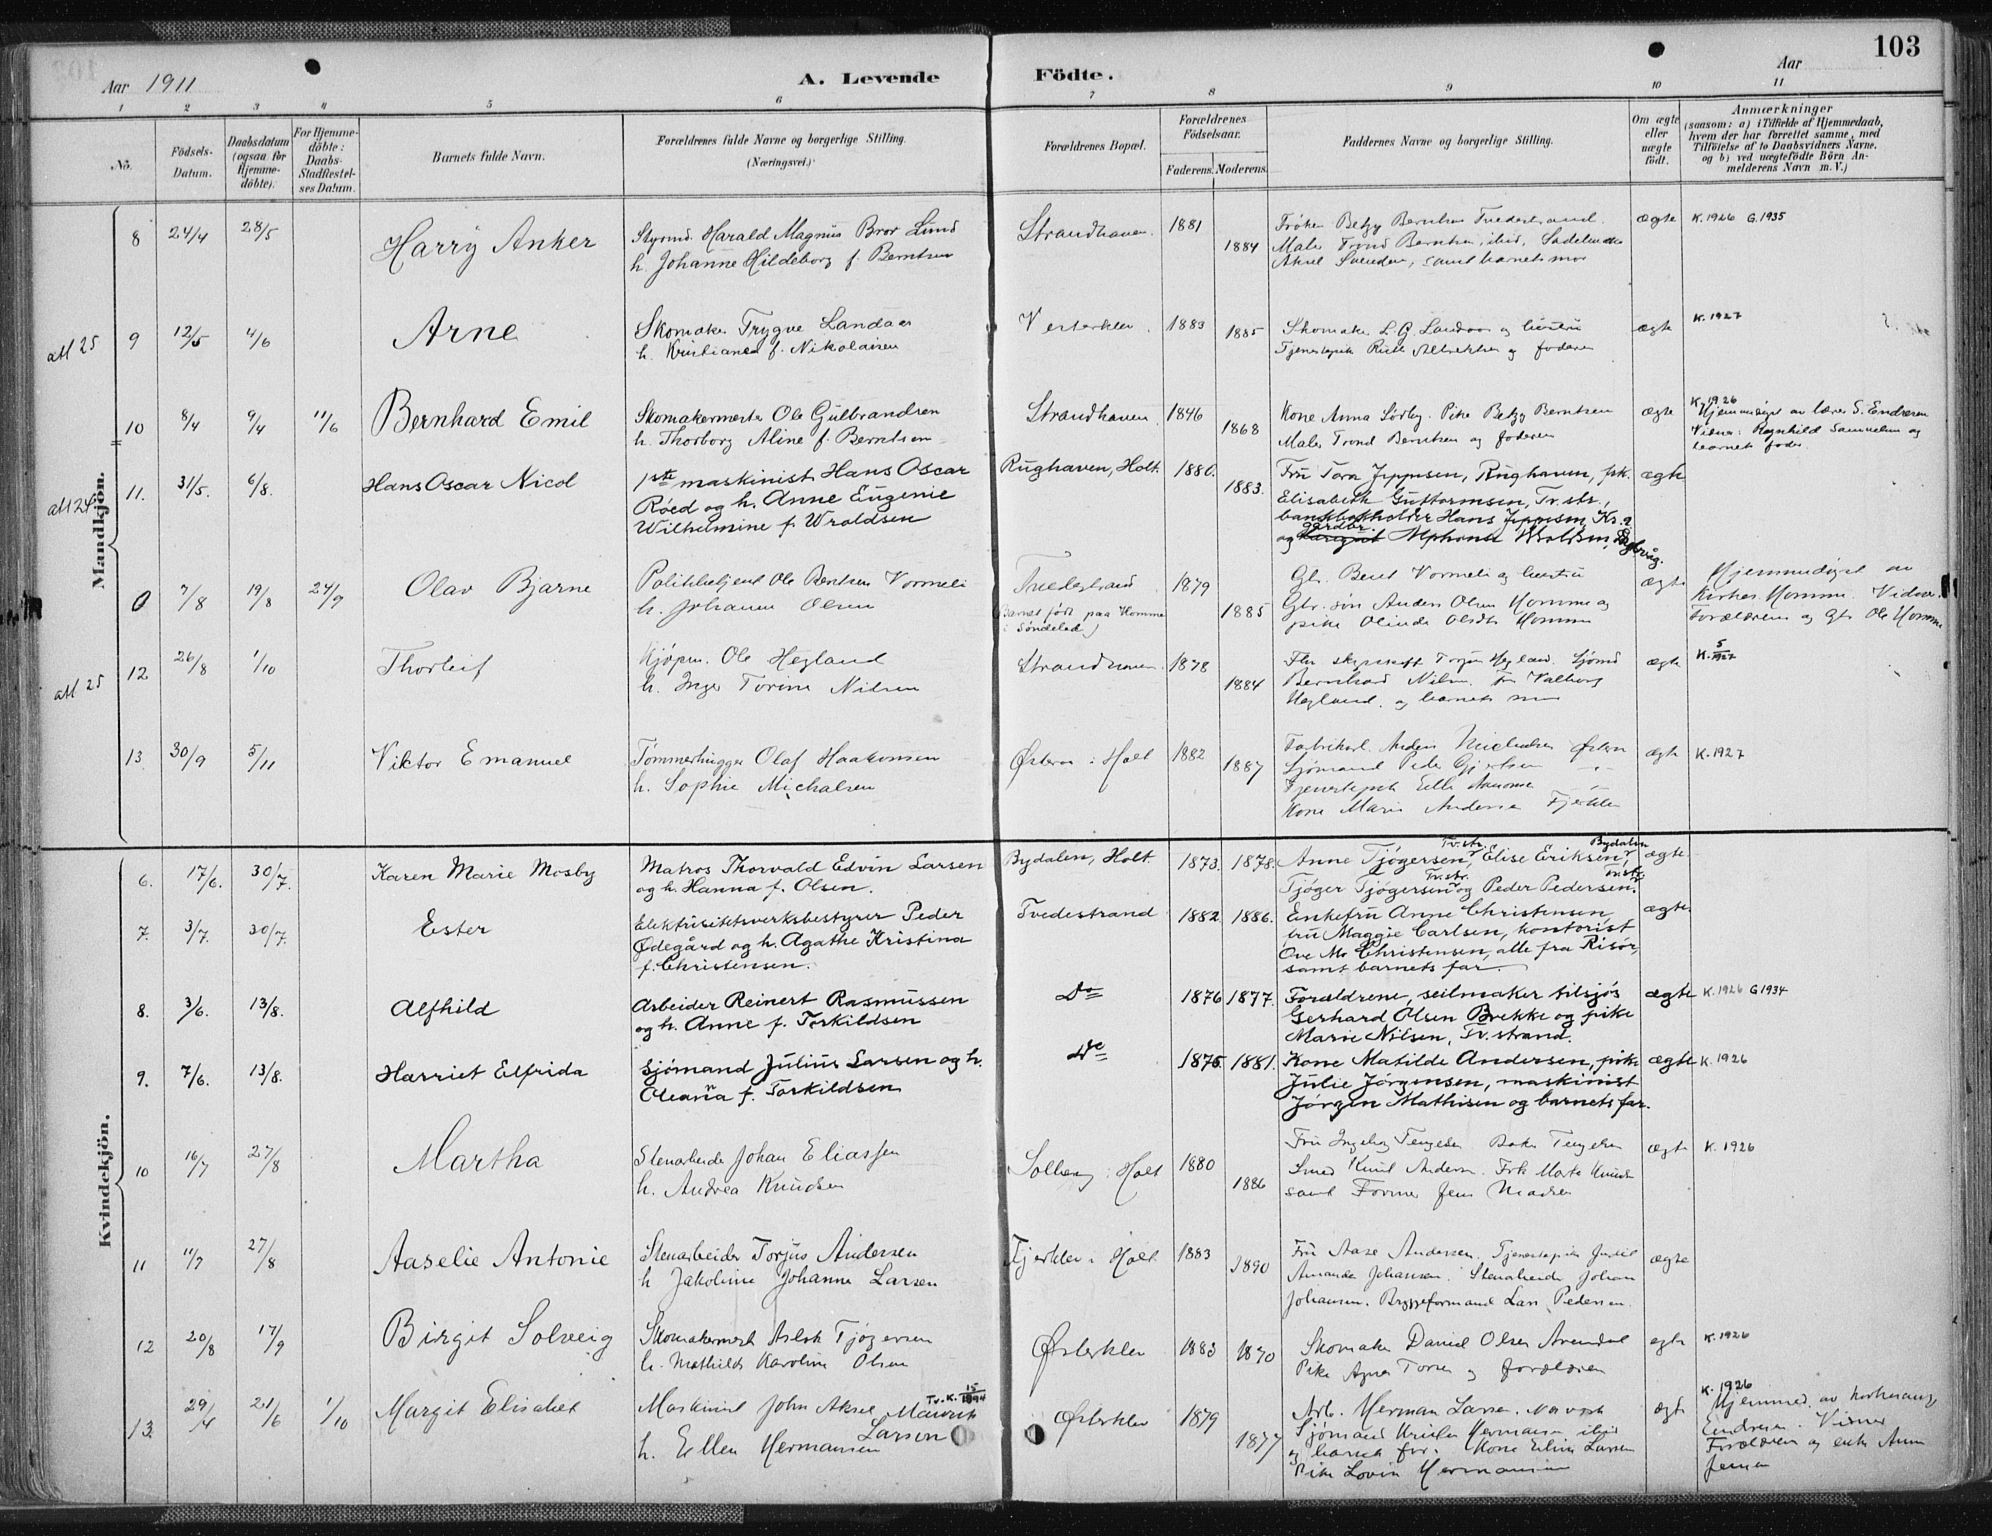 103
Aar 1911
A. Levende
Födte.
Aar
1 2 3 4 5 6 7 8 9 10 11
No.
Födsels-Datum.
Daabsdatum (ogsaa for Hjemme-döbte).
For Hjemme-döbte: Daabs-Stadfæstel-ses Datum.
Barnets fulde Navn.
Forældrenes fulde Navne og borgerlige Stilling.
(Næringsvei.)
Forældrenes Bopæl.
Forældrenes Födselsaar.
Faderens. Moderens.
Faddernes Navne og borgerlige Stilling.
Om ægte eller uægte födt.
Anmærkninger
(saasom: a) i Tilfælde af Hjemmedaab,
hvem der har forrettet samme, med
Tilföielse af to Daabsvidners Navne.
og b) ved uægtefödte Börn An-
melderens Navn m. V.)
Mandkjön.
8 24/4 28/5 Harry Anker
Styrmd. Harald Magnus Bror Lund
h. Johanne Hildeborg f. Berntsen
Strandhaven 1881 1884
Frøken Betzy Berntsen Tvedestrand
Maler Trond Berntsen, ibid,
samt barnets mor
ægte K. 1926 G. 1935
att 25
9 12/5 4/6 Arne
Skomaker Trygve Landaas
h. Kristianed f. Nikolaisen
Vesterklev 1883 1885
Skomaker L. G. Landaas og hustru
og faderen
ægte K. 1927
10 8/4 9/4 11/6 Bernhard Emil
Skomakermester Ole Gulbrandsen
h. Thorborg Aline f. Berntsen
Strandhaven 1846 1868
Kone Anna Sørby. Pike Betzy Berntsen
Maler Trond Berntsen og faderen
ægte K. 1926
Hjemmedøpt av lærer S. Endresen
Vidner: Ragnhild Samuelsen og
barnets fader
att 24
11. 31/5. 6/8. Hans Oscar Nicol
1ste maskinist Hans Oscar
Röed og h. Anne Eugenie
Wilhelmine f. Wroldsen
Rughaven, Holt. 1880. 1883.
Fru Tora Jeppesen, Rughaven, pk.
Elisabeth Guttormsen, Tv.str.,
Hans Jeppesen, Kr.a
og Alphonse Wroldsen,
ægte
0 7/8 19/8 24/9 Olav Bjarne
Politibetjent Ole Berntsen Vormeli
h. Johanne Olsen
Tvedestrand
(Barnet født paa Homme
i Søndeled)
1879 1885
Gbr. Beret Vormeli og hustru
Gbr. søn Anders Olsen Homme og
pike Olinde Olsdtr Homme
ægte
Hjemmedøpt av
Homme. Vidner:
Forældrene og Gbr Ole Homme
att 25
12 26/8 1/10 Thorleif
Kjøpm. Ole Hegland
h. Inger Torine Nilsen
Strandhaven 1878 1884
Bernhard Nilsen. Fru Valborg
Hegland. og barnets mor
ægte K. 5/1927
13. 30/9 5/11 Viktor Emanuel
Tømmerhugger Olaf Haakonsen
h. Sophie Michalsen
Østeraa i Holt 1882 1887
Sjømand Peder Gjertsen
Kone Marie Andersen Fjerklev
ægte K. 1927
Kvindekjön.
6. 17/6. 30/7. Karen Marie Mosby
Matros Thorvald Edvin Larsen
og h. Hanna f. Olsen.
Bydalen, Holt. 1873. 1878.
Anne Tjøgersen, Tv.str. Elise Eriksen, Bydalen
Tjøger Tjøgersen, Tv.str. og Peder Pedersen, Tv.str.
ægte
7. 3/7. 30/7. Ester
Elektrisitetsverksbestyrer Peder
Ødegård og h. Agathe Kristina
f. Christensen.
Tvedestrand 1882. 1886.
Enkefru Anne Christensen,
fru Maggie Carlsen, kontorist
Ove Mo Christensen, alle fra Risör,
samt barnets far.
ægte.
8. 3/6. 13/8. Alfhild
Arbeider Reinert Rasmussen
og h. Anne f. Torkildsen
Do 1876 1877.
Forældrene, seilmaker tilsjøs
Gerhard Olsen Brekke og pike
Marie Nilsen, Tv.strand.
ægte K. 1926 G 1934
9. 7/6. 13/8. Harriet Elfrida
Sjømand Julius Larsen og h.
Oleana f. Torkildsen
Do 1875. 1881.
Kone Matilde Andersen, pike
Julie Jørgensen, maskinist
Jørgen Mathisen og barnets far.
ægte K. 1926
10 16/7 27/8 Martha
Stenarbeider Johan Eliassen
h. Andrea Knudsen
Solberg i Holt 1880 1886
Smed Knut Andersen. Frk Marte Knudsen
samt Former Jens Madsen
ægte K. 1926
11 11/7 27/8 Aaselie Antonie
Stenarbeider Torjus Andersen
h Jakobine Johanne Larsen
Fjerklev i Holt 1883 1890
Fru Aase Andersen. Tjenestepike
Amanda Johansen. Stenarbeider Johan
Johansen. Bryggeformand Lars Pedersen.
ægte
12 20/8 17/9 Birgit Solveig
Skomakermest Aslak Tjøgersen
h. Mathilde Karoline Olsen
Østerklev 1883 1870
Skomaker Daniel Olsen Arendal
Pike Agnes Torsen og forældrene
ægte K. 1926
13. 29/4 21/6 1/10 Margit Elisabet
Maskinist John Aksel Mauritz
Larsen
Tv. K. 15/1894
h. Ellen Hermansen
Østerklev 1879 1877
Arb. Herman Larsen.
Sjømand Hermansen ibid
og barnets far. Kone Larsen
Pike Lovise Hermansen
ægte K. 1926
Hjemmed. av kirkesanger
Endresen. Vidner
Forældrene og enke Anne
Jensen